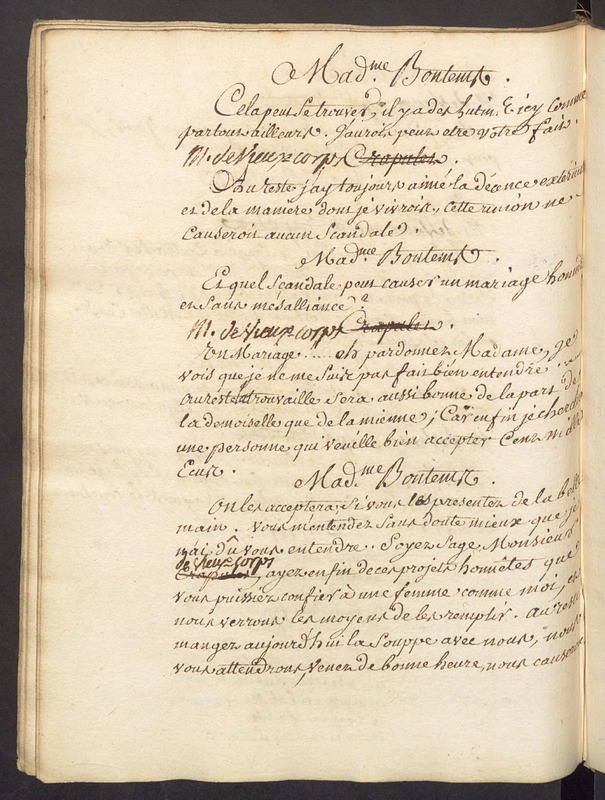 Mad.me Bontems.
Cela peut se trouver, il y a des hutins icy comme
partout ailleurs. J'aurois peut etre votre fait.
M. de Vieux corps Crapules.
Au reste j'ay toujours aimé la décance exterieure
et de la maniere dont je vivrois, cette union ne
causeroit aucun Scandale.
Mad.me Bontems.
Et quel Scandale peut causer un mariage honnête
et Sans mésalliance?
M. de Vieux corps Crapules.
En Mariage ..... eh pardonnez Madame, je
vois que je ne me Suis pas fait bien entendre .....
au reste la trouvaille Sera aussi bonne de la part de
la demoiselle que de la mienne; Car enfin je cherche
une personne qui veuille bien accepter Cent mille
Ecus.
Mad.me Bontems.
On les acceptera, Si vous les presentez de la belle
main. Vous m'entendez Sans doute mieux que je
n'ai dû vous entendre. Soyez Sage, Monsieur
de Vieux corps
Crapules, ayez enfin de ces projets honnêtes que
vous puissiez confier à une femme comme moi, et
nous verrons les moyens de les remplir. Au reste
mangez aujourd'hui la Souppe avec nous, nous
vous attendrons, venez de bonne heure, nous causerons